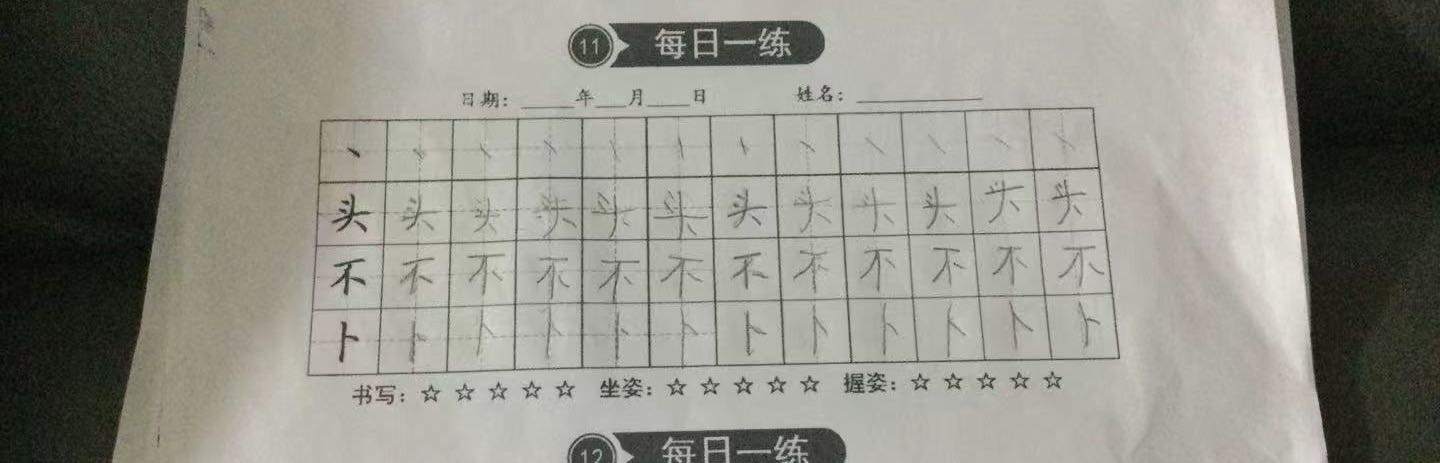 11 每日一练
日期：_____年___月____日 姓名：____________
丶 丶 丶 丶 丶 丶 丶 丶 丶 丶 丶 丶
头 头 头 头 头 头 头 头 头 头 头 头
不 不 不 不 不 不 不 不 不 不 不 不
卜 卜 卜 卜 卜 卜 卜 卜 卜 卜 卜 卜
书写：☆ ☆ ☆ ☆ ☆ 坐姿：☆ ☆ ☆ ☆ ☆ 握姿：☆ ☆ ☆ ☆ ☆
12 每日一练